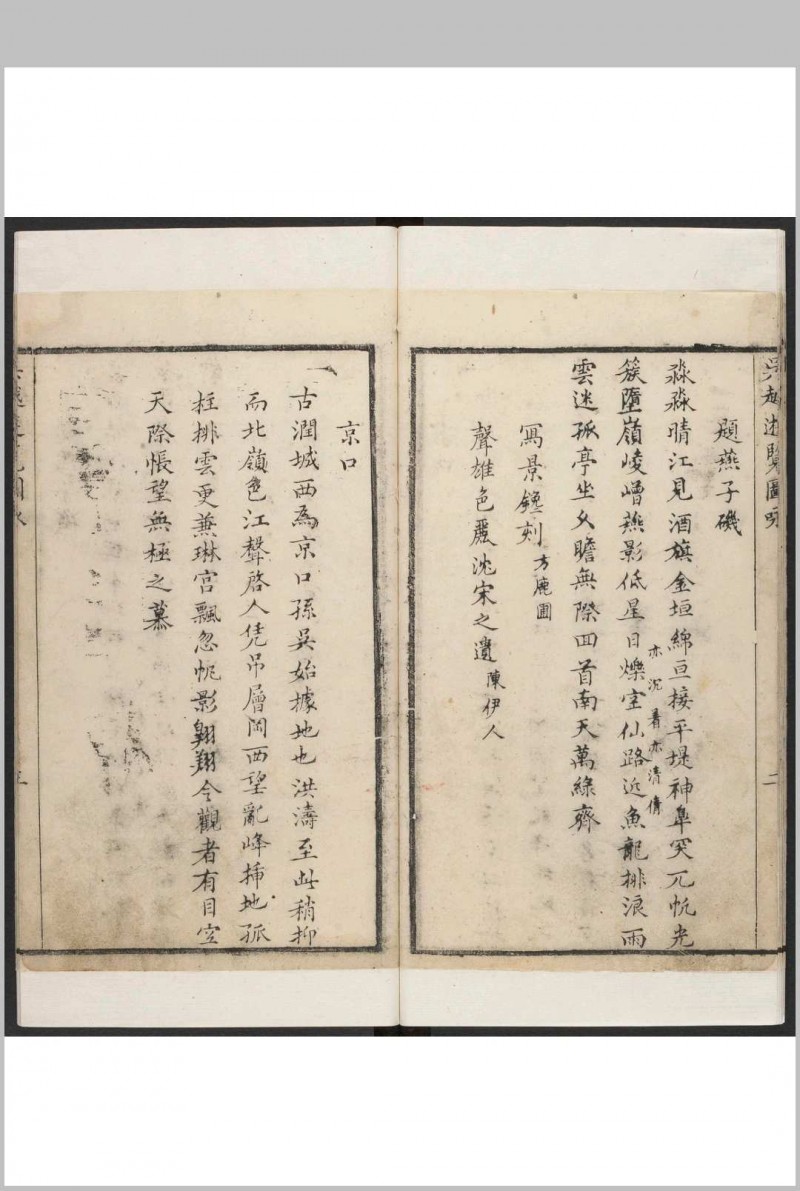 吳越遊覽圖咏
題燕子磯
淼淼晴江見酒旗金垣綿亘接平堤神臯突兀帆光
簇墮嶺崚嶒燕影低星日爍空仙路近魚龍排浪雨
亦沉着亦清倩
雲迷孤亭坐久瞻無際回首南天萬綠齊
寫景鑱刻方鹿圃
聲雄色麗沈宋之遺陳伊人
二
京口
古潤城西為京口孫吳始據地也洪濤至此稍抑
而北嶺色江聲啓人凭吊層岡西望亂峰揷地孤
柱排雲更蒹琳宮飄忽帆影翱翔令觀者有目空
天際悵望無極之慕